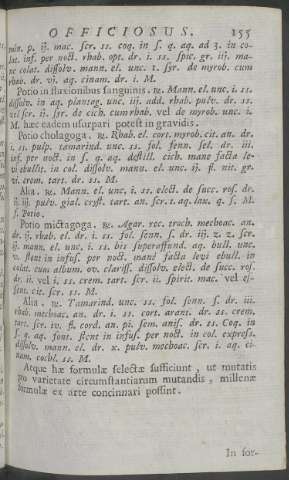 OFFICIOSUS. 155
min. p. ij. mac. scr. ss. coq. in s. q. aq. ad 3. in co-
inf. per noct. rhab. opt. dr. i. ss. spic. gr. iij. ma-
ne colat. dissolv. mann. el. unc. i. syr. de myrob. cum
rhab. dr. vj. aq. cinam. dr. i. M.
Potio in fluxionibus sanguinis. ℞. Mann. el. unc. i. ss.
dissolv. in aq. plantag. unc. iij. add. rhab. pulv. dr. ss.
scr. ij. syr. de cich. cum rhab. vel de myrob. unc. i.
M. hæc eadem usurpari potest in gravidis.
Potio cholagoga. ℞. Rhab. el. cort. myrob. cit. an. dr.
i. ss. pulp. tamarind. unc. ss. fol. senn. sel. dr. iij.
inf. per noct. in s. q. aq. destill. cich. mane facta le-
vi ebullit. in col. dissolv. mann. el. unc. ij. fl. nit. gr.
vi. crem. tart. dr. ss. M.
Alia. ℞. Mann. el. unc. i. ss. elect. de succ. ros. dr.
ij. iij. pulv. gial. cryst. tart. an. scr. i. aq. lax. q. s. M.
f. Potio.
Potio mictagoga. ℞. Agar. rec. troch. mechoac. an.
dr. ij. rhab. el. dr. i. ss. fol. senn. s. dr. iij. z. z. scr.
ij. mann. el. unc. i. ss. his superaffund. aq. bull. unc.
v. stent in infus. per noct. mane facta levi ebull. in
colat. cum album. ov. clariff. dissolv. elect. de succ. ros.
dr. ii. vel i. ss. crem. tart. scr. ii. spirit. mac. vel ej-
cit. scr. ss. M.
Alia. ℞. Tamarind. unc. ss. fol. senn. s. dr. iii.
rhab. mechoac. an. dr. i. ss. cort. arans. dr. ss. crem.
tart. scr. iv. fl. cord. an. pi. sem. anis. dr. ss. Coq. in
s. q. aq. font. stent in infus. per noct. in col. express.
dissolv. mann. el. dr. x. pulv. mechoac. scr. i. aq. ci-
nam. cochl. ss. M.
Atque hæ formulæ selectæ sufficiunt, ut mutatis
pro varietate circumstantiarum mutandis, millenæ
formulæ ex arte concinnari possint.
In for-